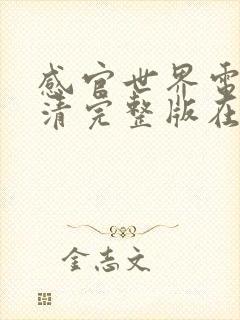 感官世界電
清完整版在
金志文